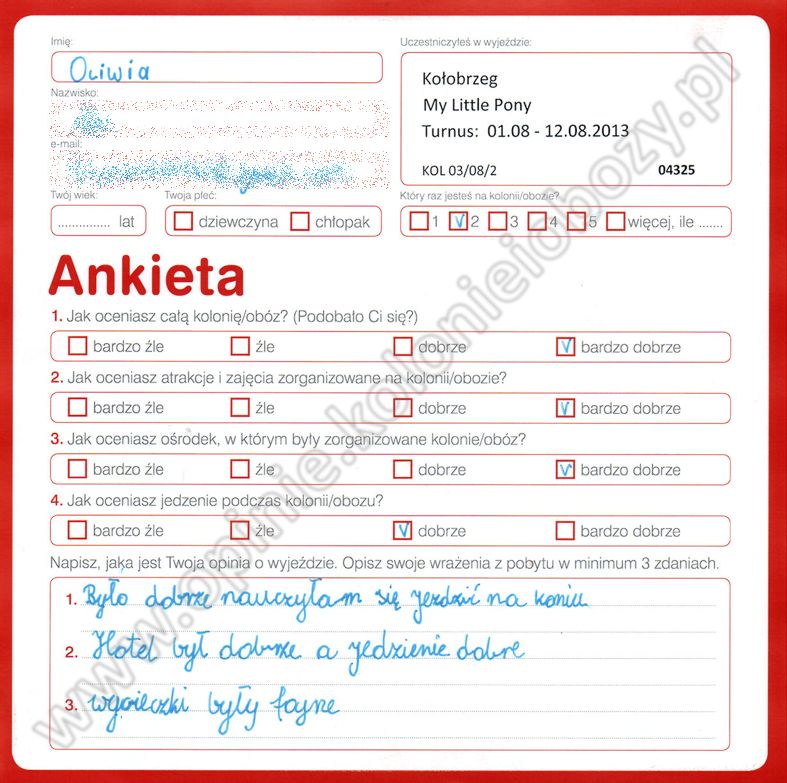 Imię:
Oliwia
Uczestniczyłeś w wyjeździe:
Kołobrzeg
My Little Pony
Turnus: 01.08 - 12.08.2013
KOL 03/08/2 04325
Nazwisko:
e-mail:
Twój wiek:
............... lat
Twoja płeć:
dziewczyna chłopak
Który raz jesteś na kolonii/obozie?
1 V 2 3 4 5 więcej, ile .......
Ankieta
1. Jak oceniasz całą kolonię/obóz? (Podobało Ci się?)
bardzo źle źle dobrze V bardzo dobrze
2. Jak oceniasz atrakcje i zajęcia zorganizowane na kolonii/obozie?
bardzo źle źle dobrze V bardzo dobrze
3. Jak oceniasz ośrodek, w którym były zorganizowane kolonie/obóz?
bardzo źle źle dobrze V bardzo dobrze
4. Jak oceniasz jedzenie podczas kolonii/obozu?
bardzo źle źle V dobrze bardzo dobrze
Napisz, jaka jest Twoja opinia o wyjeździe. Opisz swoje wrażenia z pobytu w minimum 3 zdaniach.
1. Było dobrze nauczyłam się jezdzić na koniu
2. Hotel był dobrze a jedzienie dobre
3. wycieczki były fajne
www.opinie.kolonieiobozy.pl